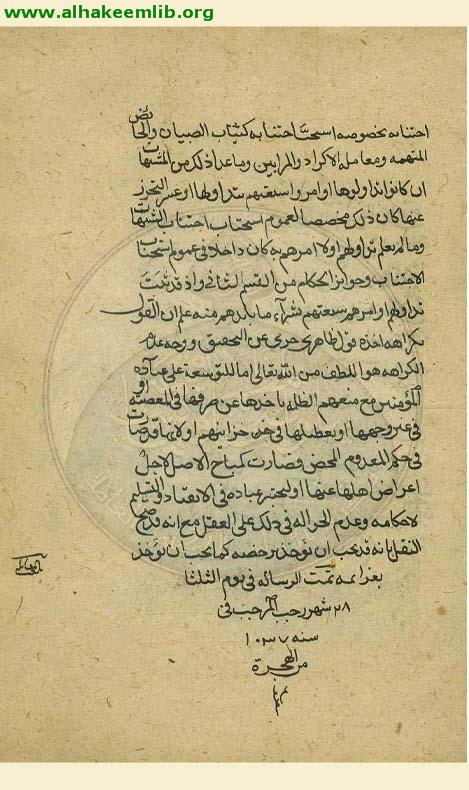 www.alhakeemlib.org
اجتنابه بخصوصه استحبنا اجتنابه كثياب الصبيان والحائض
المتهمه ومعامله الاكراد والمرابين وما عدا ذلك من المشتبهات
ان كانوا تداولوها او امروا شيعتهم بتداولها وعسر التحرز
عنها كان ذلك مخصصا لعموم استحباب اجتناب الشبهات
وما لم يعلم تداولهم ولا امرهم به كان داخلا فى عموم استحباب
الاجتناب وجوائز الحكام من القسم الثانى واذ قد ثبت
تداولهم وامرهم شيعتهم بشرآء ما بايديهم منه علم ان القول
بكراهه اخذه قول ظاهرى عرى عن التحقيق ووجه عدم
الكراهه هو اللطف من الله تعالى اما للتوسعة على عباده
المؤمنين مع منعهم الظلمه باخذها عن صرفها فى المعصيه او
فى غير وجهها او تعطيلها فى خزائنهم او لانها قد صارت
فى حكم المعدوم المحض فصارت كمباح الاصل لاجل
اعراض اهلها عنها او ليختبر عباده فى الانقياد والتسليم
لاحكامه وعدم الحواله فى ذلك على العقل مع انه قد صح
النقل بانه قد يحب ان يؤخذ برخصه كما يحب ان يؤخذ
بعزائمه تمت الرساله فى يوم الثلثا
٢٨ شهر رجب المرجب فى
سنه ١٠٣٧
من الهجرة